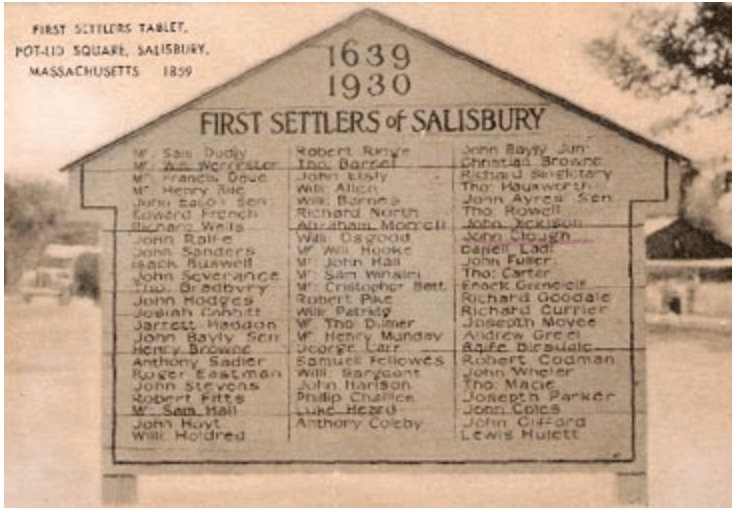 FIRST SETTLERS TABLET,
POT-LID SQUARE, SALISBURY,
MASSACHUSETTS 1639
1639
1930
FIRST SETTLERS of SALISBURY
Mr. Sam: Dudly
Mr. Will: Worcester
Mr. Francis Doue
Mr. Henry
John Eaton Sen
Edward French
Richard Wells
John Rolfe
John Sanders
Isack Buswell
John Severance
Tho: Bradbury
John Hodges
Josiah Cobbitt
Jarrett Haddon
John Bayly Sen
Henry Browne
Anthony Sadler
Roger Eastman
John Stevens
Robert Fitts
Mr. Sam: Hall
John Hoyt
Will: Holdred
Robert Ringe
Tho: Barnet
John Elsly
Will: Allen
Will: Barnes
Richard North
Abraham Morrell
Will: Osgood
Mr. Will: Hooke
Mr. John Hall
Mr. Sam: Winsley
Mr. Cristopher Batt
Robert Pike
Will: Patridg
Mr. Tho: Dumer
Mr. Henry Munday
George Carr
Samuel Fellowes
Will: Sargeant
John Harison
Philip Challies
Luke Heard
Anthony Coleby
John Bayly Jun:
Christian Browne
Richard Singletary
Tho: Hauxworth
John Ayres Sen
Tho: Rowell
John Dickison
John Clough
Daniell Lad
John Fuller
Tho: Carter
Enock Greneleif
Richard Goodale
Richard Currier
Joseph Moyce
Andrew Greel
Ralfe Blesdale
Robert Codman
John Wheler
Tho: Macie
Joseph Parker
John Coles
John Clifford
Lewis Hulett